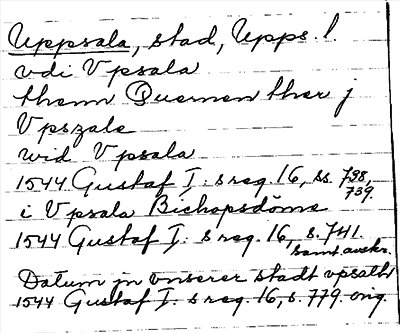 Uppsala, stad, Upps. l.
vdi Vpsala
them Quernen ther j
Vpszale
wid Vpsala
1544 Gustaf I: s reg. 16, ss. 738,
739.
i Vpsala Bichopsdöme
1544 Gustaf I: s reg. 16, s. 741.
samt avskr.
Datum jn vnserer stadt vpsalh
1544 Gustaf I: s reg. 16, s. 779. orig.